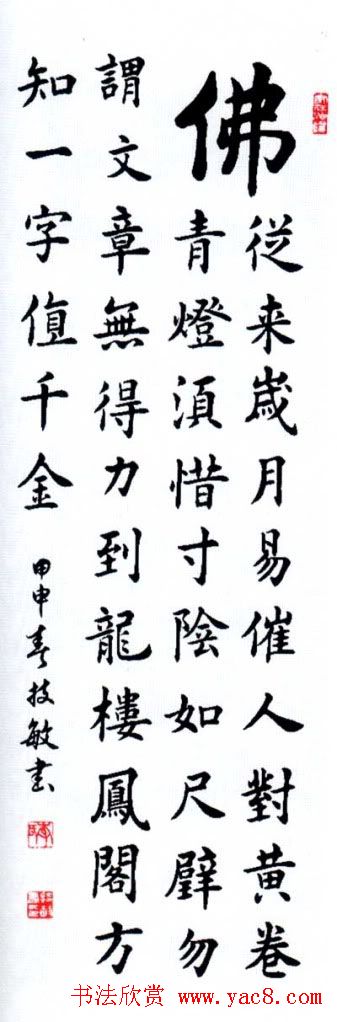 佛
從来歲月易催人對黄卷
青燈湏惜寸陰如尺璧勿
謂文章無得力到龍樓鳳閣方
知一字值千金
甲申春技敏書
书法欣赏 www.yac8.com